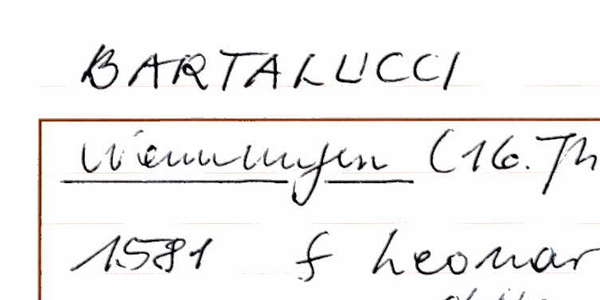 BARTALUCCI
Wemmingen (16. Jh
1581 f Leonar